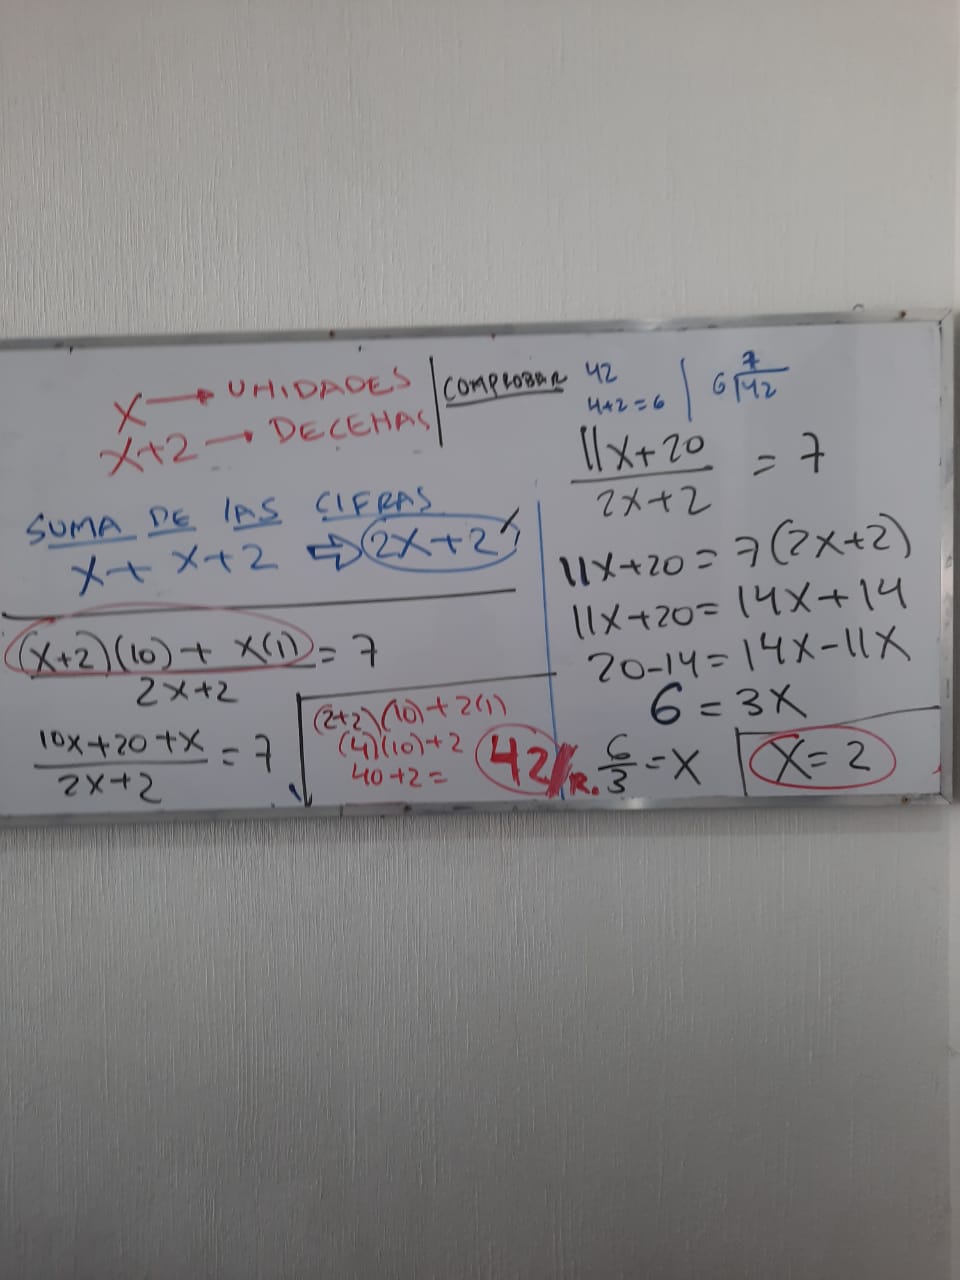 X → UNIDADES
X+2 → DECENAS
SUMA DE LAS CIFRAS
X + X+2 ⇨ 2X+2
(X+2)(10) + X(1) = 7
2X+2
10X+20+X = 7
2X+2
(2+2)(10)+2(1)
(4)(10)+2
40+2= 42 R.
COMPROBAR
42
4+2=6
7
6 42
11X+20 = 7
2X+2
11X+20 = 7(2X+2)
11X+20 = 14X+14
20-14 = 14X-11X
6 = 3X
6/3 = X
X = 2